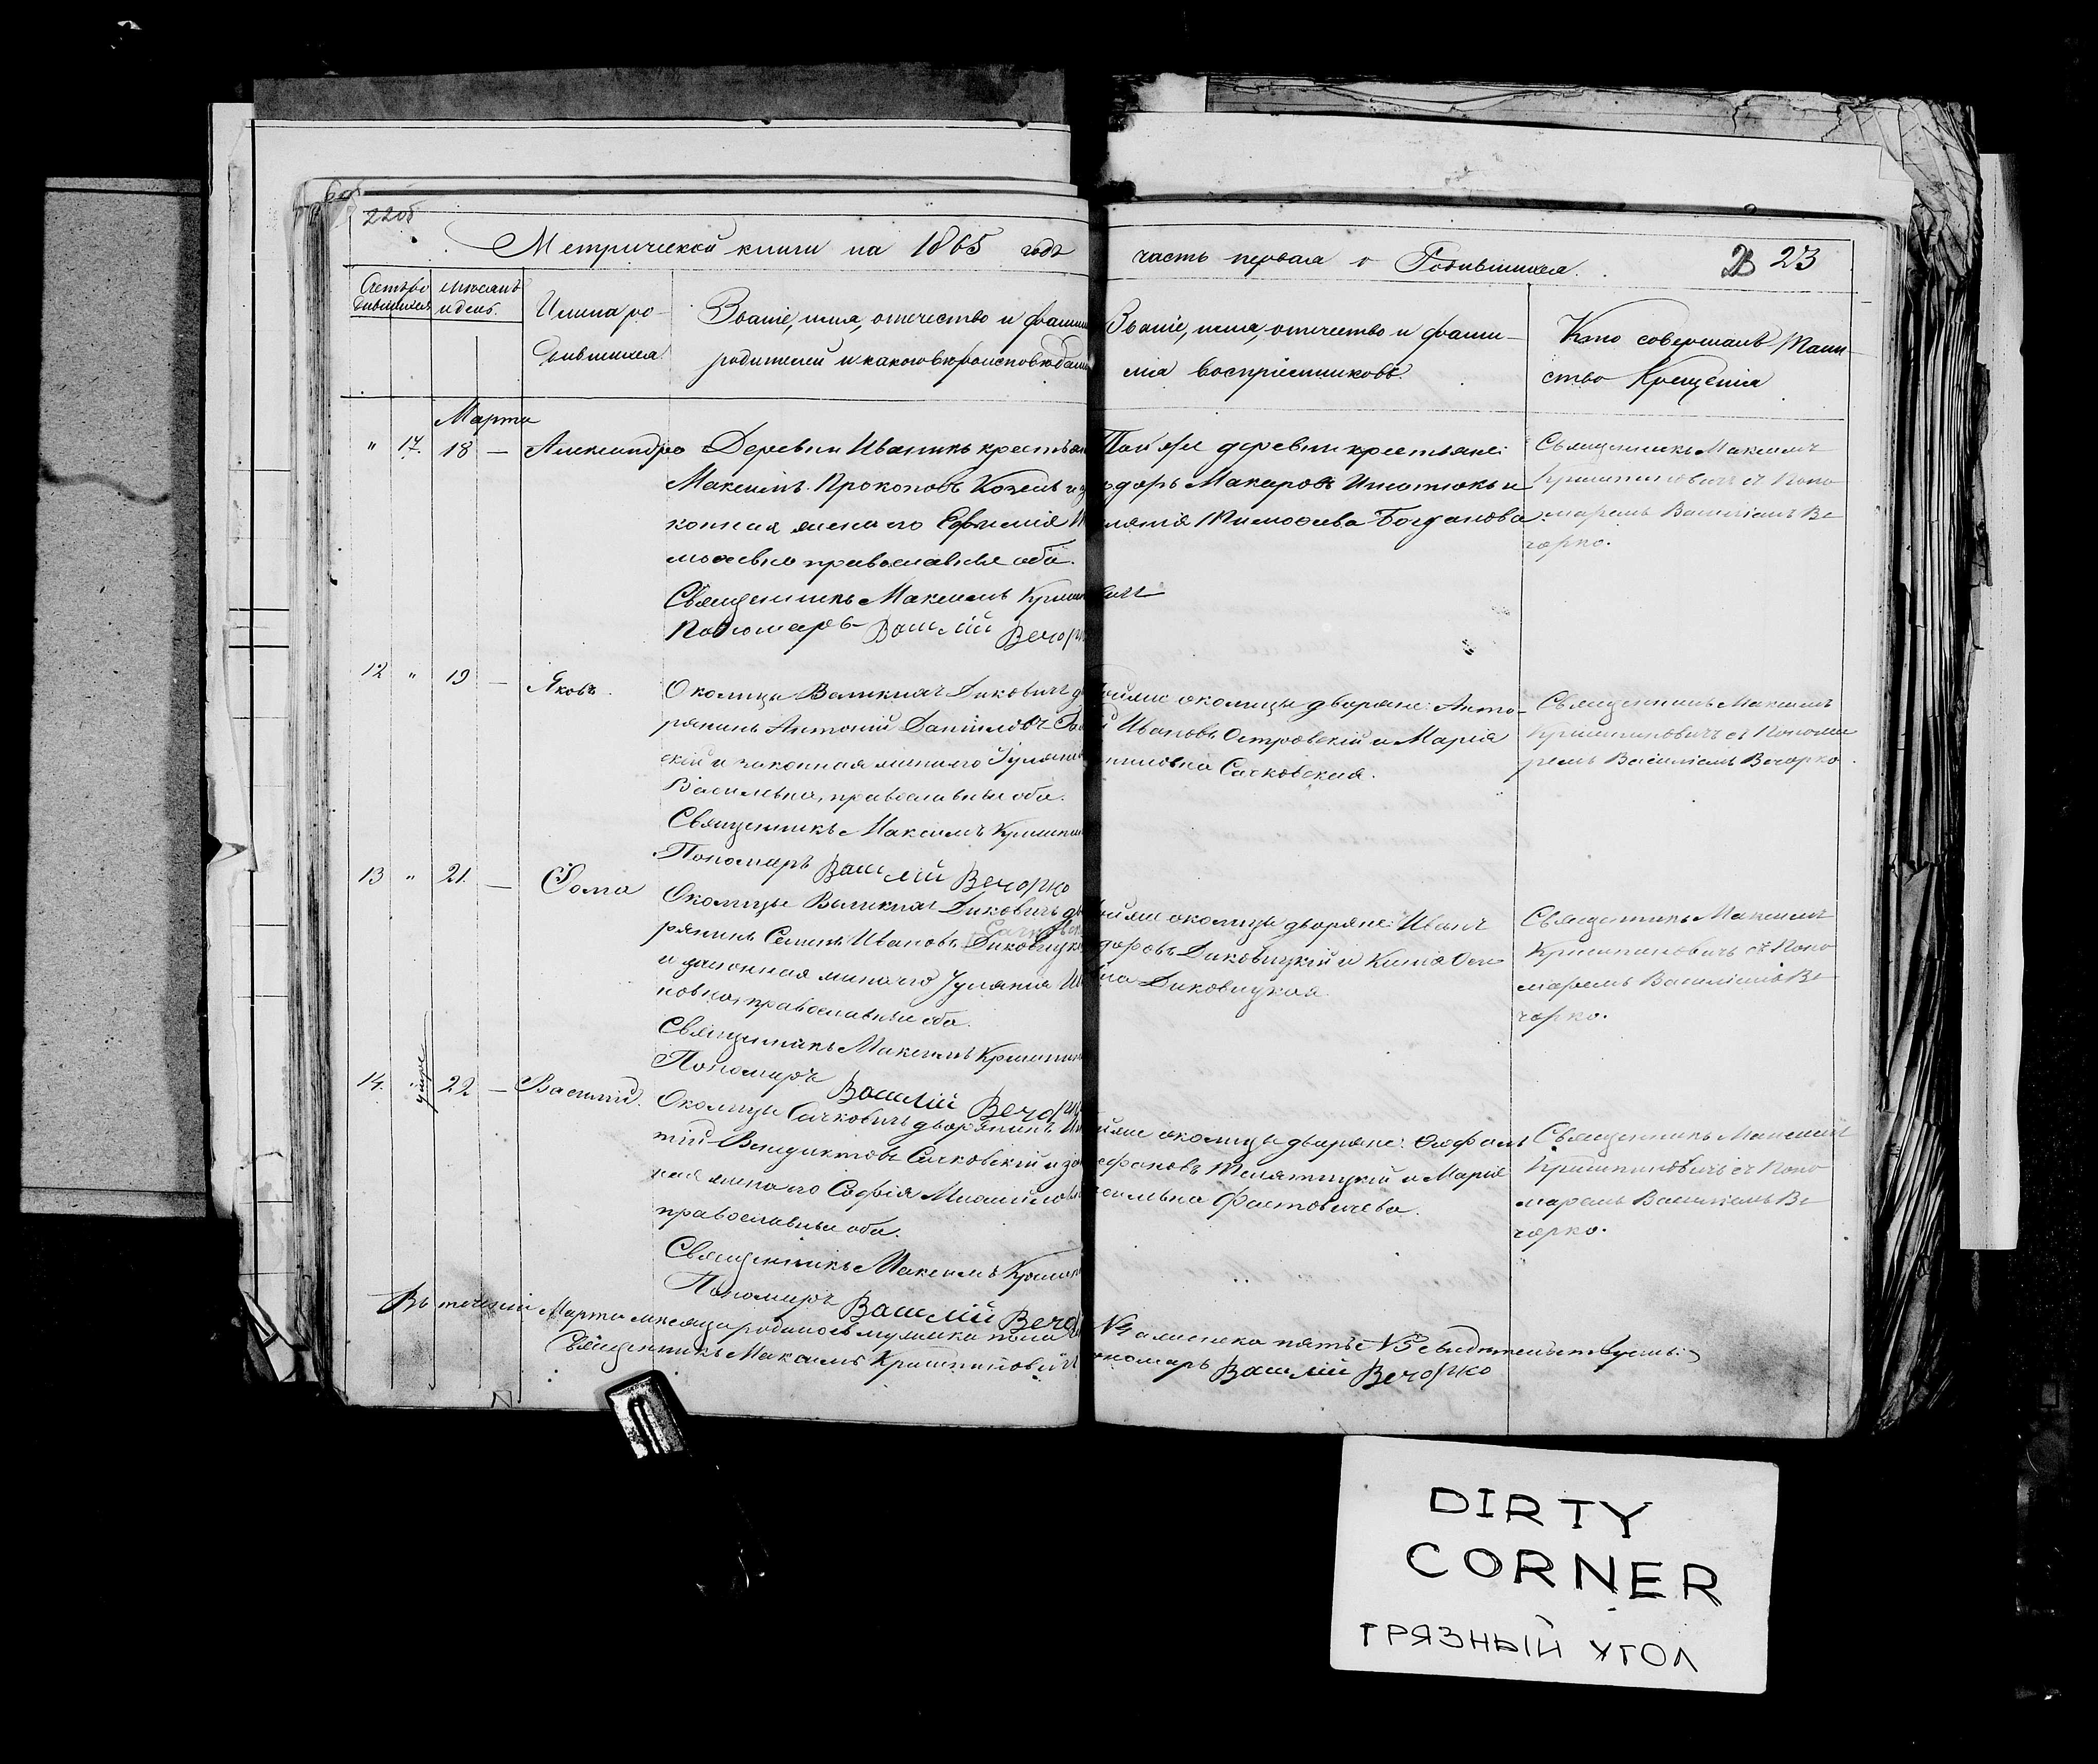 22об
Метрической книги на 1865 годъ
часть первая о Родившихся.
23
Счетъ ро
дившихся
Мѣсяцъ
и день.
Имина ро-
дившихся.
Званіе, имя, отечество и фамил
родителей и какого вѣроисповѣдан
Званіе, имя, отчество и фами-
лія воспріемниковъ.
Кто совершалъ Таин-
ство Крещенія
Марта
" 17. 18 — Александра
Деревни Иваникъ крестьян
Максимъ Прокоповъ Козелъ и за
конная жена его Евфимія
моѳеевна православные оба.
Священникъ Максимъ
Пономарь Василій Вечор
Той же деревни крестьяне:
одоръ Макаровъ Игнатюкъ и
Тимоѳеева Богданова.
Священникъ Максимъ
Криштиновичъ съ Поно
маремъ Василіемъ Ве
чорко.
12 " 19 — Яковъ.
Околицы Великихъ Диковичъ дво
рянинъ Антоній Даніиловъ
скій и законная жена его Іуліанія
Васильевна, православные оба.
Священникъ Максимъ
Пономарь Василій Вечорко
тойже околицы дворяне: Анто-
Ивановъ Островскій и Марія
Сачковская.
Священникъ Максимъ
Криштиновичъ съ Понома
ремъ Василіемъ Вечорко.
13 " 21. — Ѳома
Околицы Великихъ Диковичъ дво
рянинъ Семенъ Ивановъ Диковицкій
и законная жена его Іуліанія Ива
новна, православные оба.
Священникъ Максимъ
Пономарь Василій Вечорк
тойже околицы дворяне: Иванъ
доровъ Диковицкій и
Диковицкая.
Священникъ Максимъ
Криштиновичъ съ Поно
маремъ Василіемъ Ве
чорко.
14. " 22 — Василій.
умре
Околицы Сачковичъ дворянинъ
тій Венедиктовъ Сачковскій и зак
ная жена его Софія Михайлов
православные оба.
Священникъ Максимъ
Пономарь Василій Вечо
тойже околицы дворяне:
ефановъ Телятицкій и Марія
сильева Фастовичева.
Священникъ Максимъ
Криштиновичъ съ Поно
маремъ Василіемъ Ве
чорко.
Въ теченіи Марта мѣсяца родилось мужска пола
№ 4 а женска пять № 5 свидѣтельствуемъ:
Священникъ Максимъ Криштиновичъ
ономарь Василій Вечорко
DIRTY
CORNER
ГРЯЗНЫЙ УГОЛ